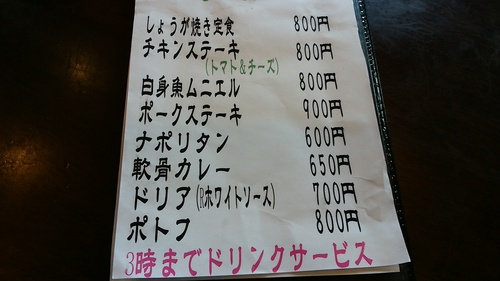 しょうが焼き定食 800円
チキンステーキ 800円
(トマト&チーズ)
白身魚ムニエル 800円
ポークステーキ 900円
ナポリタン 600円
軟骨カレー 650円
ドリア(Rホワイトソース) 700円
ポトフ 800円
3時までドリンクサービス